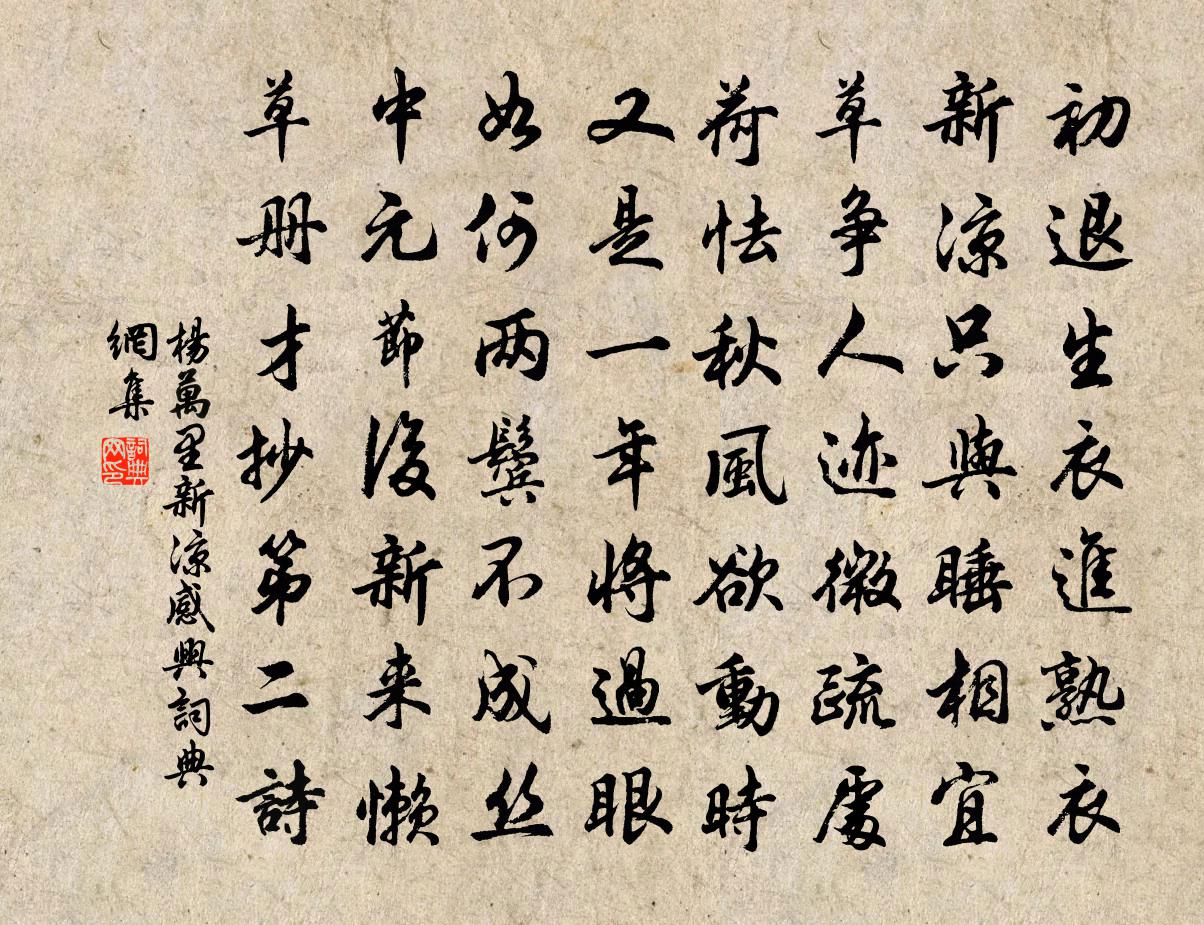 初退生衣進熟衣
新涼只與睡相宜
草争人迹微疏處
荷怯秋風欲動時
又是一年將過眼
如何两鬢不成丝
中元節後新来懒
草册才抄第二詩
楊萬里新涼感興詞典
網集
詞典
网印